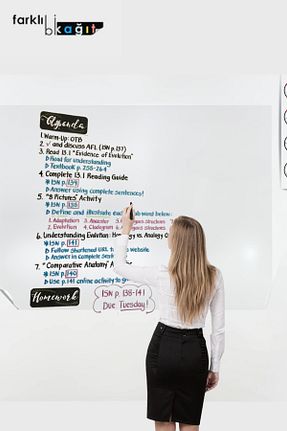 farklı
bi
kağıt
Agenda
1. Warm-Up: OTB
2. √ and discuss AFL (ISN p.137)
3. Read 13.1 "Evidence of Evolution"
Read for understanding
Textbook p. 258-264
4. Complete 13.1 Reading Guide
*ISN p. 139
Answer using complete sentences!
5. "8 Pictures" Activity
*ISN p. 138
Define and illustrate each word below:
1. Adaptation 3. Ancestor structures
2. Evolution 4. Cladogram structures
6. Understanding Evolution: Homology vs. Analogy
*ISN p. 141
Follow Shortened URL website
Answer in complete
7. "Comparative Anatomy"
*ISN p. 140
Use p. 141 online activity to
Homework
ISN p. 138-141
Due Tuesday!